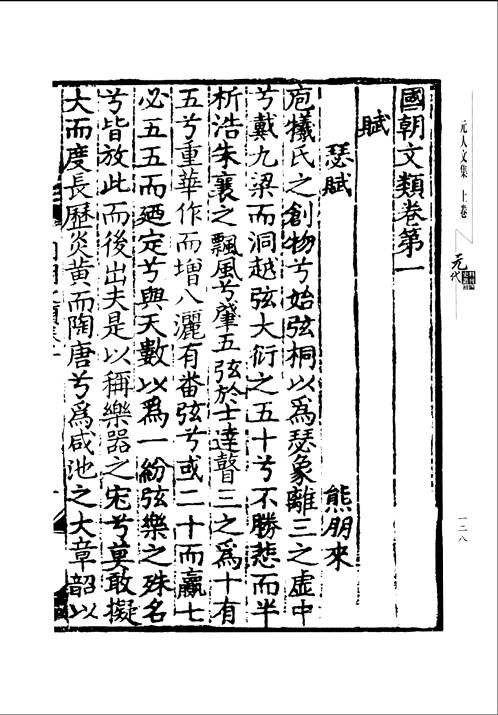 元人文集 上卷
元代
一三八
國朝文類卷第一
賦
瑟賦 熊朋來
庖犧氏之創物兮始弦桐以為瑟象離三之虛中
兮戴九梁而洞越弦大衍之五十兮不勝悲而半
析浩朱襄之飄風兮肇五弦於士達瞽三之為十有
五兮重華作而增八灑有番弦兮或二十而贏七
必五五而廼定兮與天數以為一紛弦樂之殊名
兮皆放此而後出夫是以稱樂器之宗兮莫敢擬
大而度長歷炎黃而陶唐兮為咸池之大章韶以